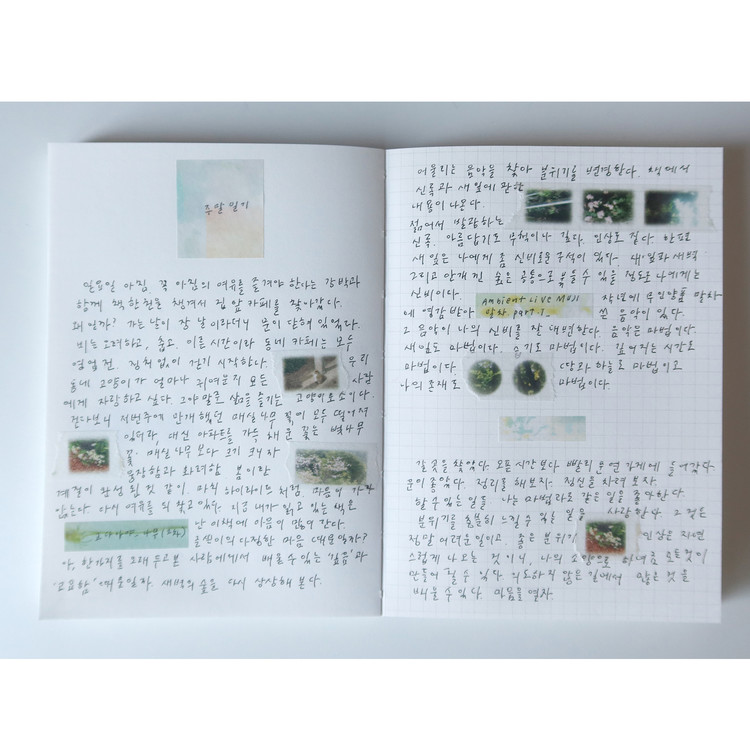 주말 일기
일요일 아침. 꼭 아침의 여유를 즐겨야 한다는 강박과
함께 책 한 권을 챙겨서 집 앞 카페를 찾아갔다.
왜일까? 가는 날이 장날이라더니 문이 닫혀 있었다.
비는 오려하고, 춥고. 이른 시간이라 동네 카페는 모두
영업 전. 정처없이 걷기 시작한다. 우리
동네 고양이가 얼마나 귀여운지 모든 사람
에게 자랑하고 싶다. 그야말로 삶을 즐기는 고양이로소이다.
걷다보니 저번주에 만개했던 매실나무 꽃이 모두 떨어져
있더라. 대신 아파트를 가득 채운 꽃은 벚나무
꽃. 매실나무 보다 크기
웅장함과 화려함. 봄이란
계절이 완성 된 것 같이. 마치 하이라이트처럼. 마음이 가라
앉는다. 다시 여유를 되찾고 있다. 지금 내가 읽고 있는 책은
난 이 책에 마음이 많이 간다.
글쓴이의 다정한 마음 때문일까?
아, 한 가지를 오래 두고 본 사람에게서 배울 수 있는 '깊음'과
'고요함' 때문일까. 새벽의 숲을 다시 상상해 본다.
어울리는 음악을 찾아 분위기를 변경한다. 책에서
신록과 새 잎에 관한
내용이 나온다.
젊어서 발랄하는
신록. 아름답기도
새 잎은 나에게 좀 신비로운 구석이 있다. 새 잎과 새벽
그리고 안개 낀 숲은 공통으로 묶을 수 있을 정도로 나에게는
신비이다. Ambient Live MUJI 작년에 무인양품 말차
에 영감 받아 말차 part.1 쓴 음악이 있다.
그 음악이 나의 신비를 잘 대변한다. 음악은 마법이다.
새 잎도 마법이다. 공기도 마법이다. 깊어지는 시간도
마법이다. 땅과 하늘도 마법이고
나의 존재도 마법이다.
갈 곳을 찾았다. 오픈 시간보다 빨리 문 연 가게에 들어갔다.
운이 좋았다. 정리를 해보자. 정신을 차려 보자.
할 수 있는 일들 나는 마법과도 같은 일을 좋아한다
분위기를 충분히 느낄 수 있는 일을 사랑한다 그 것은
정말 어려운 일이고, 좋은 분위기 인상은 자연
스럽게 나오는 것이니, 나의 소망으로 하여금 모든 것이
만들어 질 수 있다. 의도하지 않은 길에서 많은 것을
배울 수 있다. 마음을 열자.